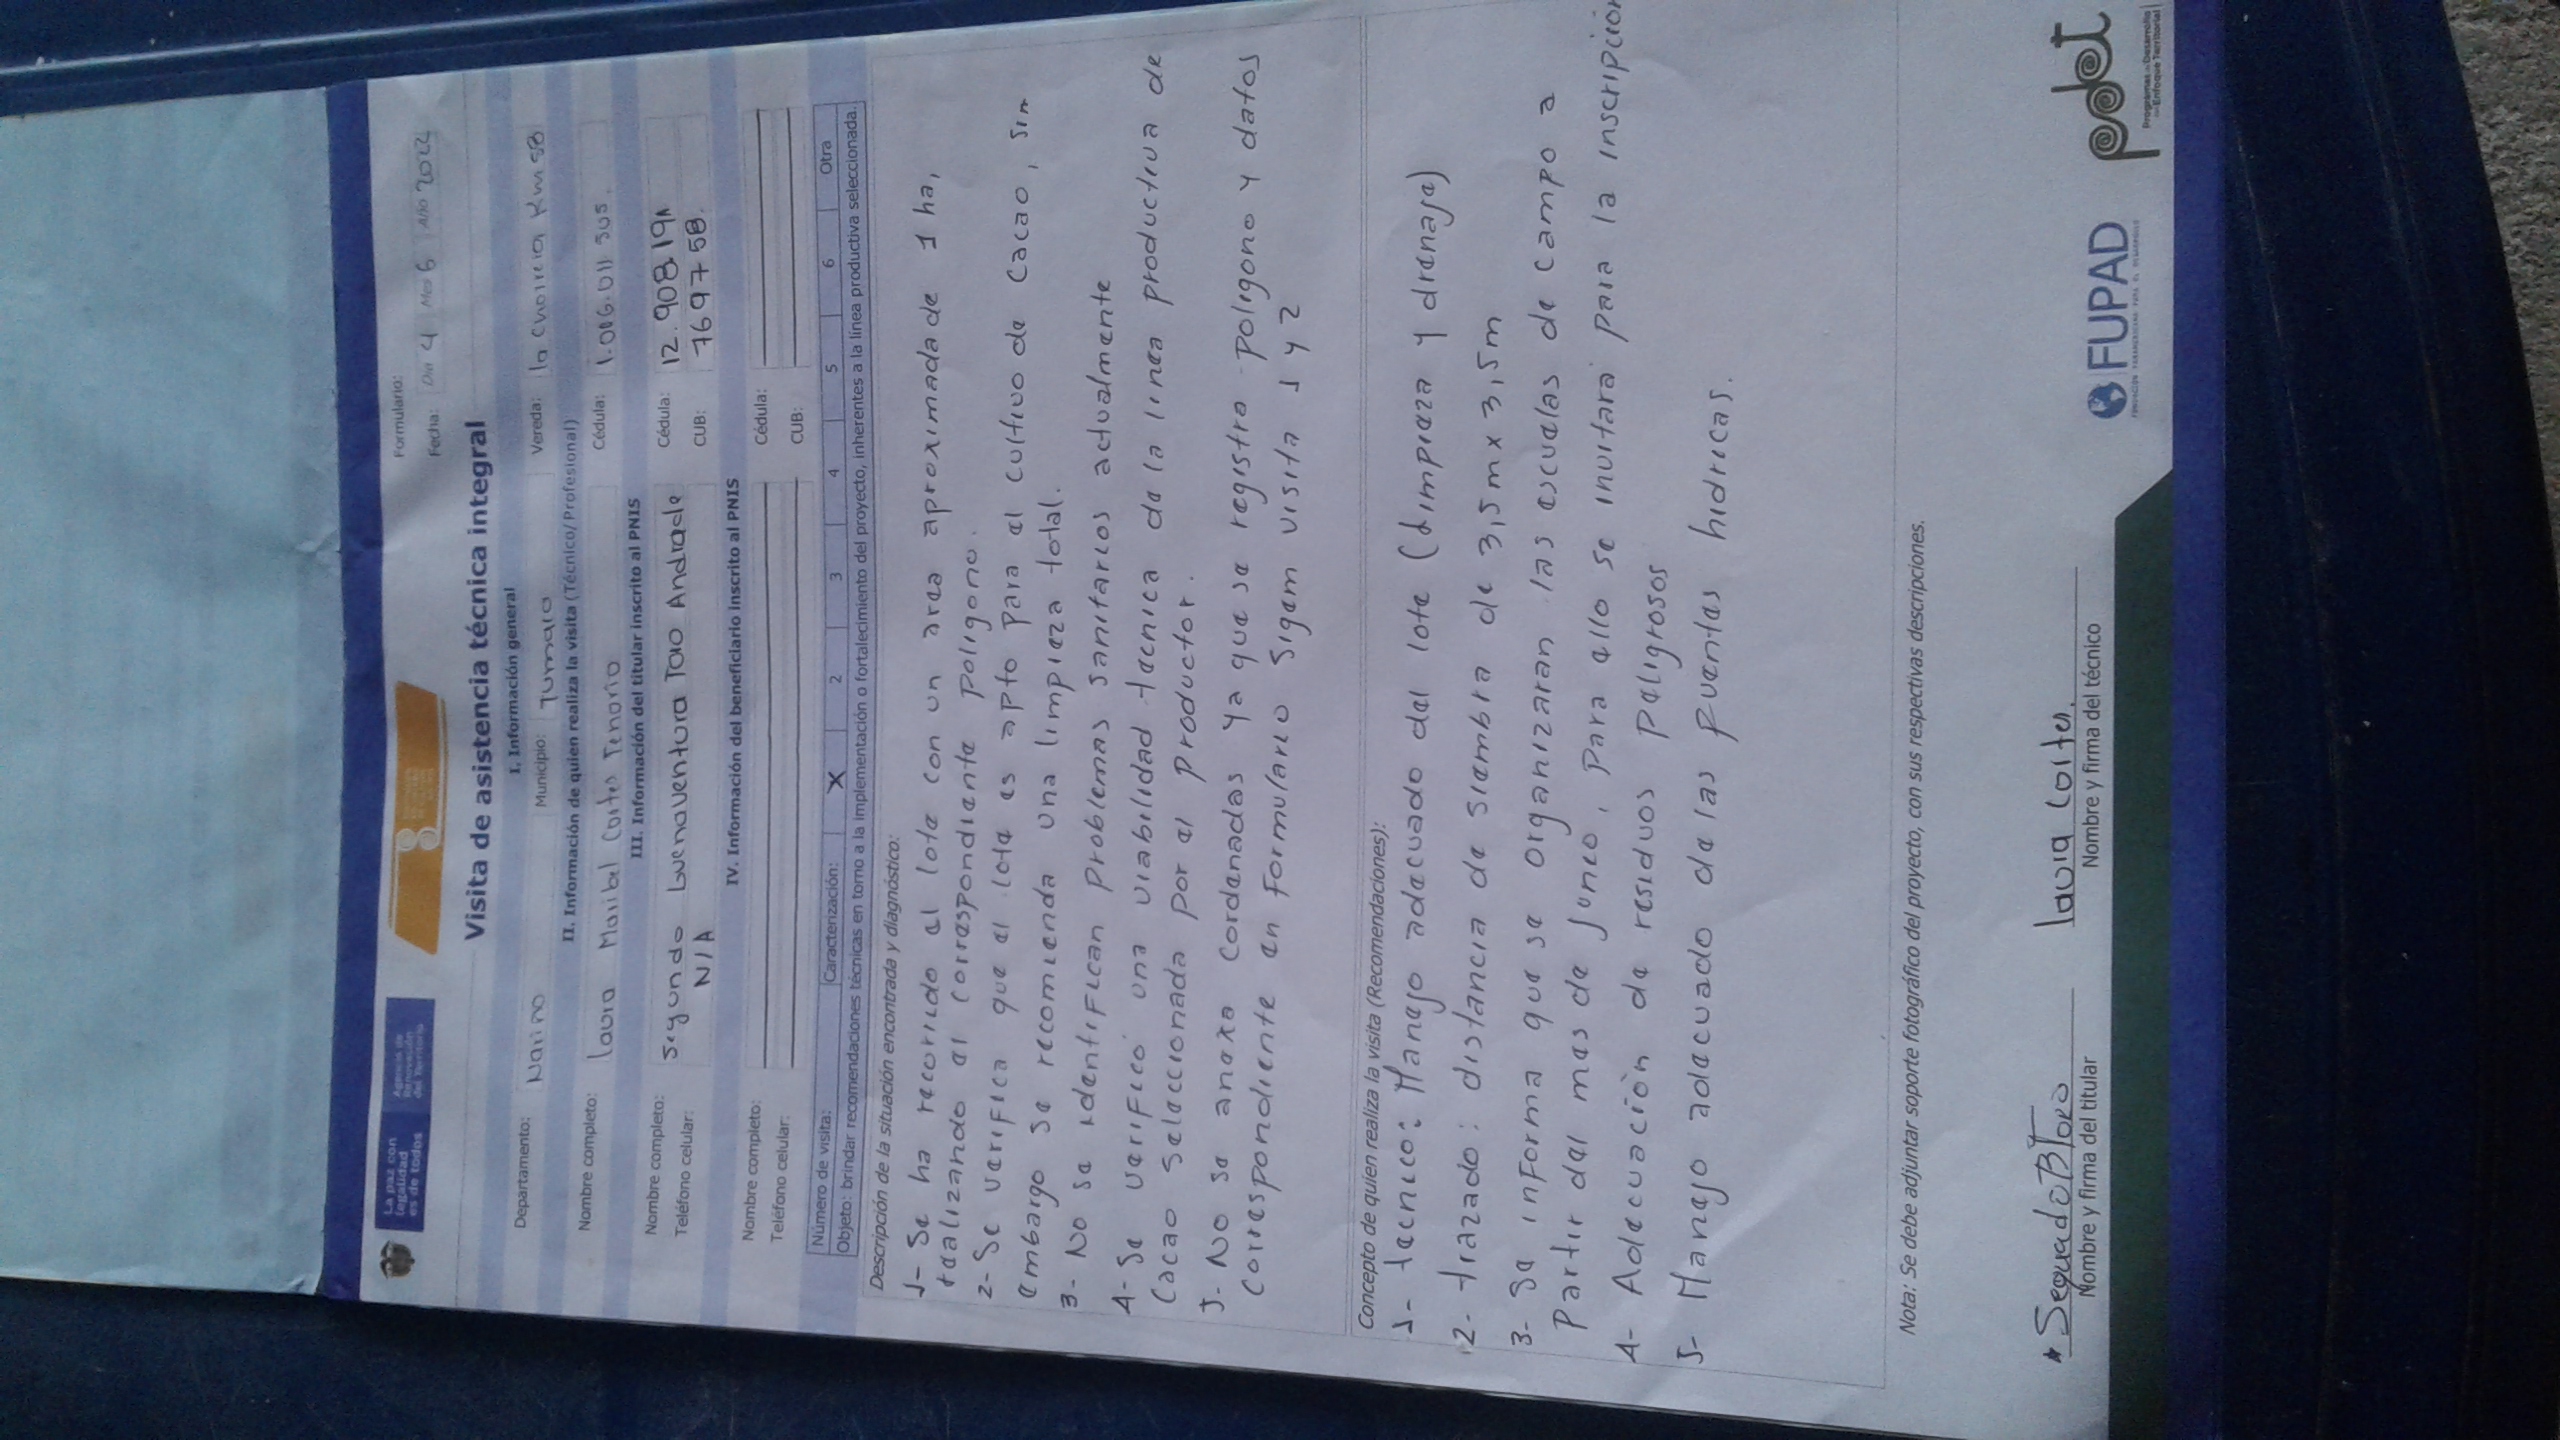 La paz con
legalidad
es de todos
Agencia de
Renovación
del Territorio
Formulario:
Fecha: Día 4 Mes 6 Año 2022
Visita de asistencia técnica integral
I. Información general
Departamento: Nariño Municipio: Tumaco Vereda: la Chorrera Km 58
II. Información de quien realiza la visita (Técnico/Profesional)
Nombre completo: Laura Maribel Cortes Tenorio Cédula: 1.006.011.505.
III. Información del titular inscrito al PNIS
Nombre completo: Segundo Buenaventura Toro Andrade Cédula: 12.908.191
Teléfono celular: N/A CUB: 769758.
IV. Información del beneficiario inscrito al PNIS
Nombre completo: Cédula:
Teléfono celular: CUB:
Número de visita: Caracterización: X 2 3 4 5 6 Otra
Objeto: brindar recomendaciones técnicas en torno a la implementación o fortalecimiento del proyecto, inherentes a la línea productiva seleccionada.
Descripción de la situación encontrada y diagnóstico:
1- Se ha recorrido el lote con un area aproximada de 1 ha,
realizando el correspondiente poligono.
2- Se verifica que el lote es apto para el cultivo de cacao, sin
embargo se recomienda una limpieza total.
3- No se identifican problemas sanitarios actualmente
4- Se verificó una viabilidad tecnica de la linea productiva de
Cacao seleccionada por el productor.
5- No se anexa cordenadas ya que se registro poligono y datos
correspondiente en formulario Sigem visita 1 y 2
Concepto de quien realiza la visita (Recomendaciones):
1- tecnico: Manejo adecuado del lote (Limpieza y drenaje)
2- trazado: distancia de siembra de 3,5m x 3,5m
3- Se informa que se organizaran las escuelas de campo a
Partir del mes de junio, para ello se invitará para la inscripción
4- Adecuación de residuos peligrosos
5- Manejo adecuado de las fuentes hidricas.
Nota: Se debe adjuntar soporte fotográfico del proyecto, con sus respectivas descripciones.
* Segundo B Toro Laura Cortes.
Nombre y firma del titular Nombre y firma del técnico
FUPAD
pdet
Programas de Desarrollo
con Enfoque Territorial